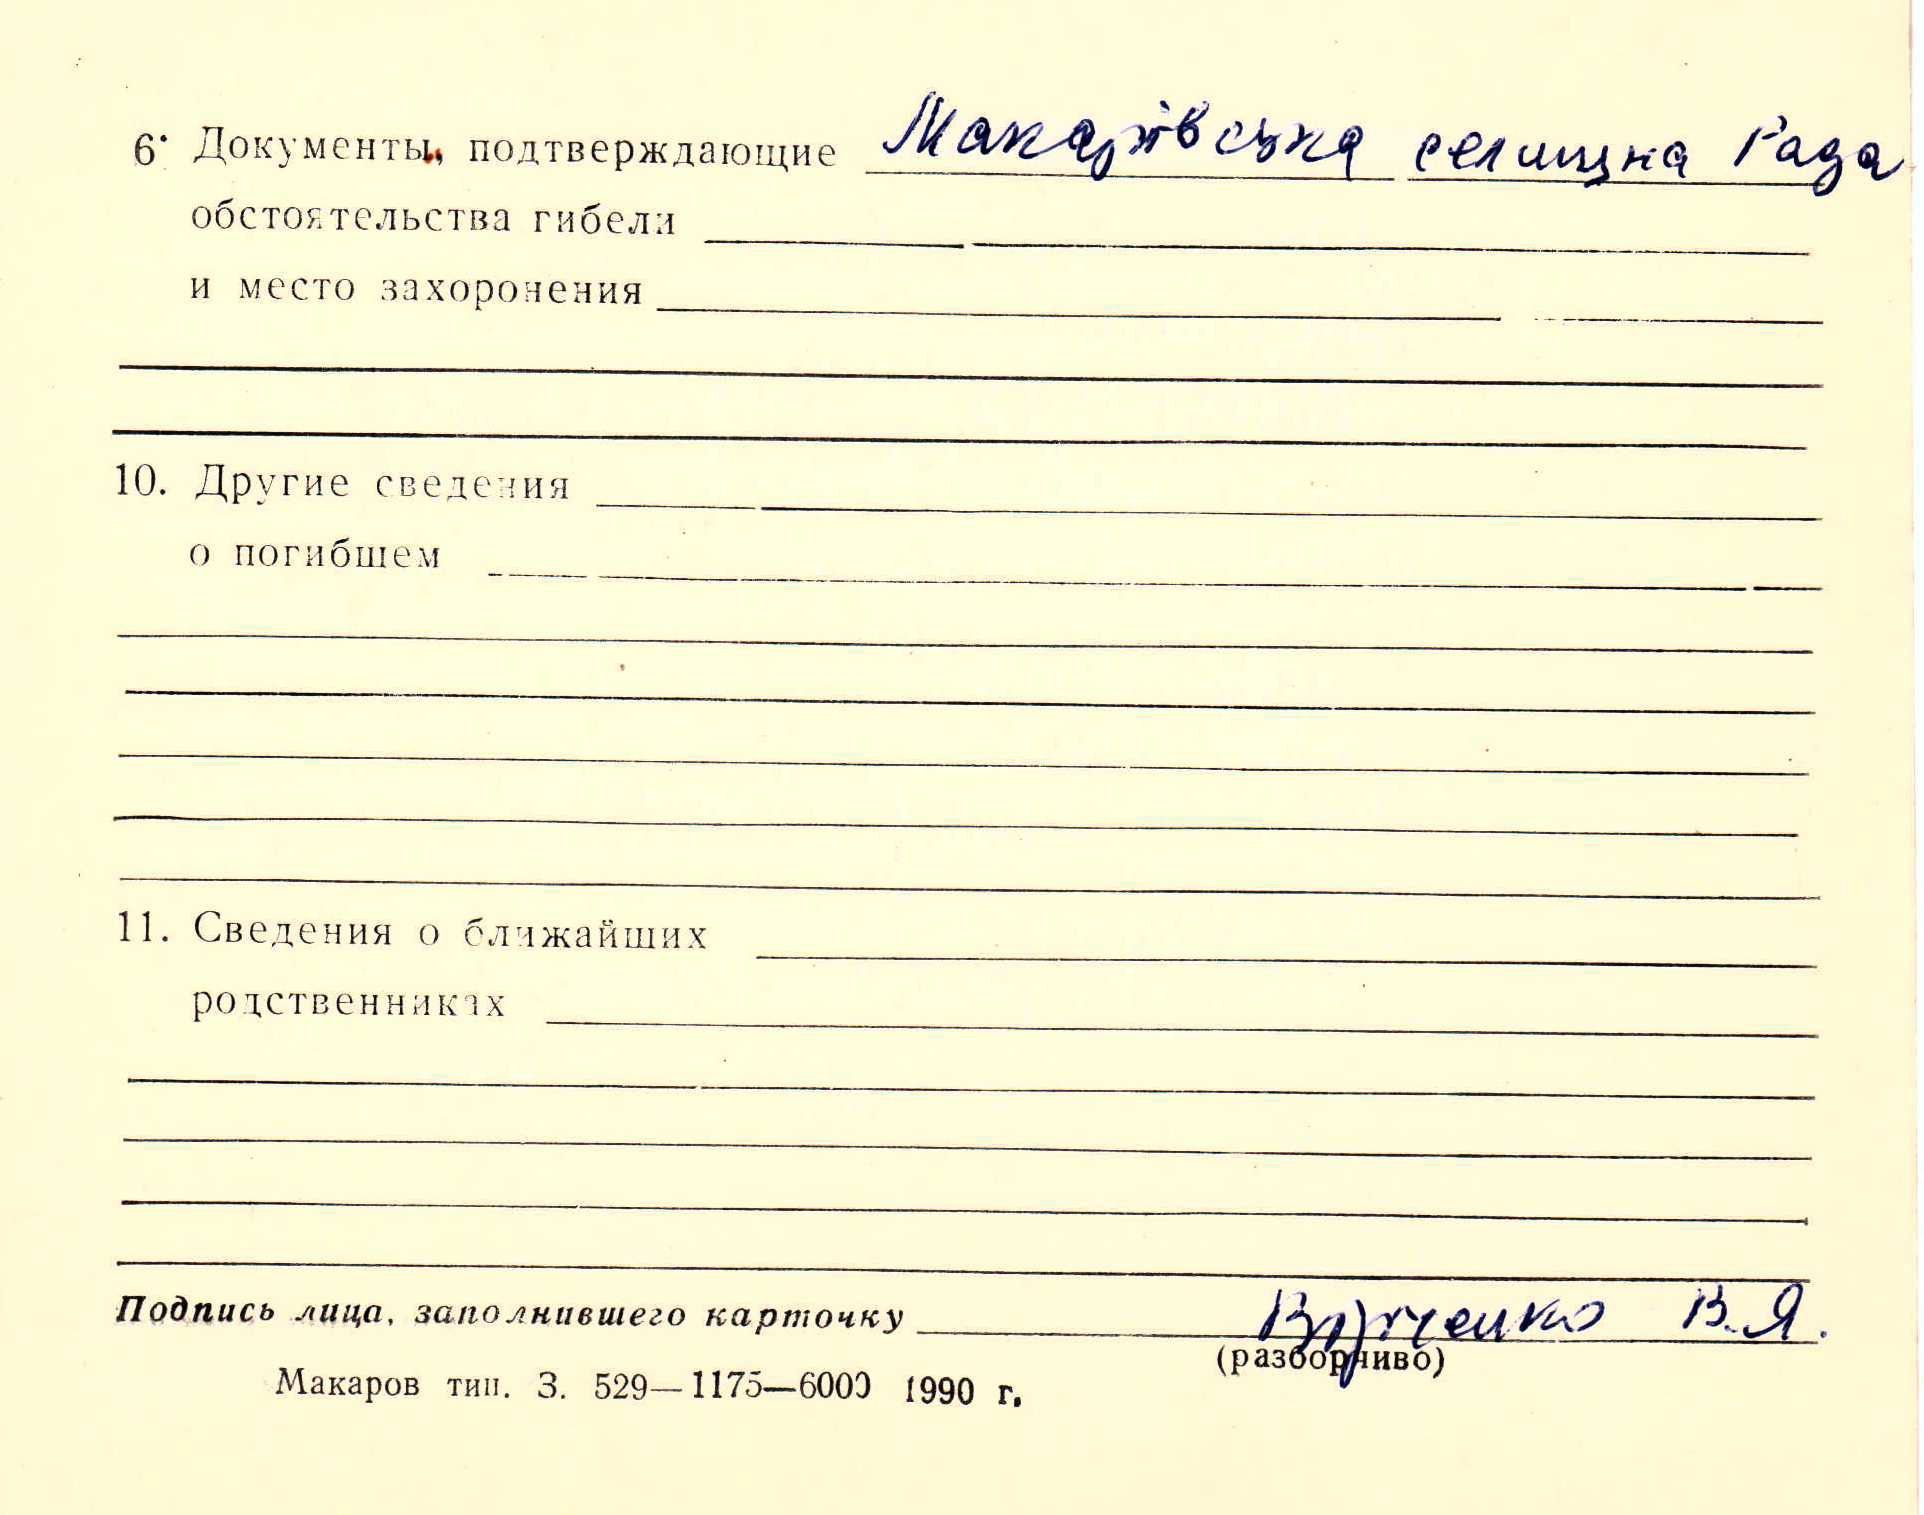 6. Документы, подтверждающие Макарівська селищна Рада
обстоятельства гибели
и место захоронения
10. Другие сведения
о погибшем
11. Сведения о ближайших
родственниках
Подпись лица, заполнившего карточку В.Я.
(разборчиво)
Макаров тип. З. 529—1175—6000 1990 г.